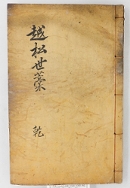 越松世蒙
乾